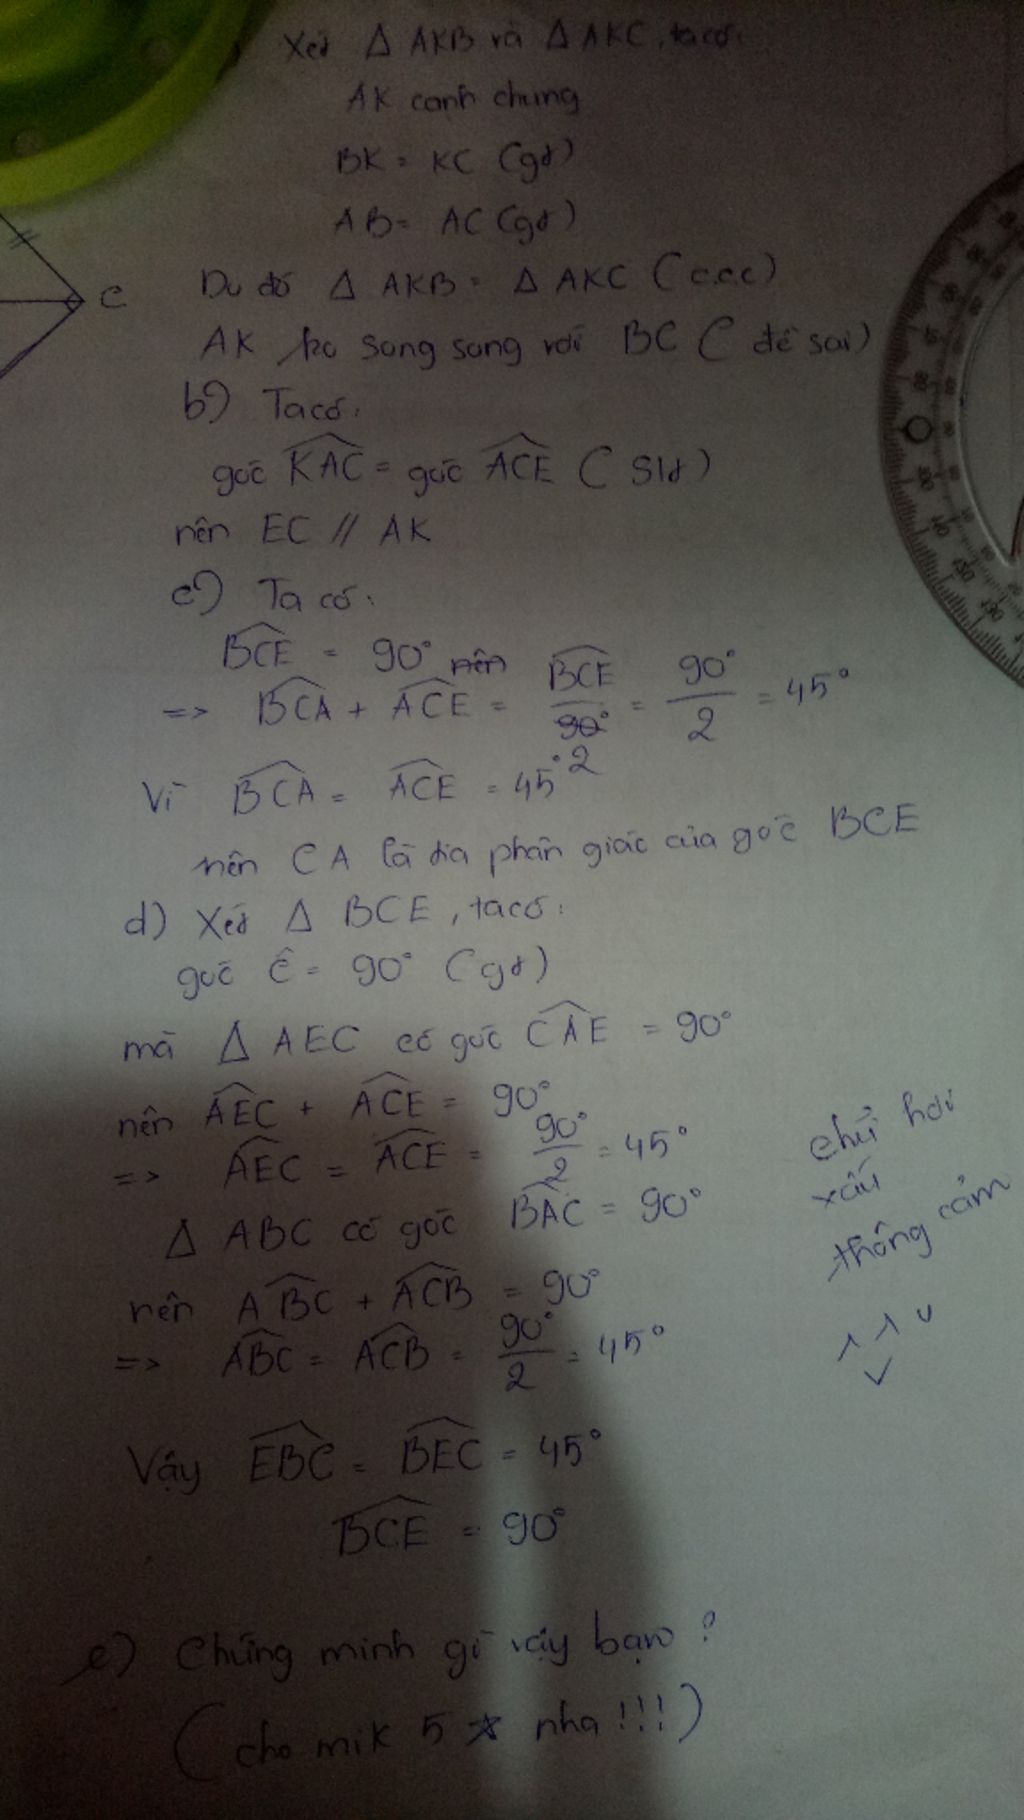 Xét Δ AKB và Δ AKC, ta có:
AK cạnh chung
BK = KC (gt)
AB = AC (gt)
C
Do đó Δ AKB = Δ AKC (c.c.c)
AK ko song song với BC ( đề sai)
b) Ta có:
góc KAC = góc ACE ( Slt)
nên EC // AK
c) Ta có:
BCE = 90° nên
=> BCA + ACE = BCE / 90° 2 = 90° / 2 = 45°
Vì BCA = ACE = 45°
nên CA là tia phân giác của góc BCE
d) Xét Δ BCE, ta có:
góc Ĉ = 90° (gt)
mà Δ AEC có góc CAE = 90°
nên AEC + ACE = 90°
=> AEC = ACE = 90° / 2 = 45°
Δ ABC có góc BAC = 90°
nên ABC + ACB = 90°
=> ABC = ACB = 90° / 2 = 45°
Vậy EBC = BEC = 45°
BCE = 90°
chữ hơi
xấu
thông cảm
^ ^ v
v
e) Chứng minh gì vậy bạn?
(cho mik 5 ☆ nha!!!)